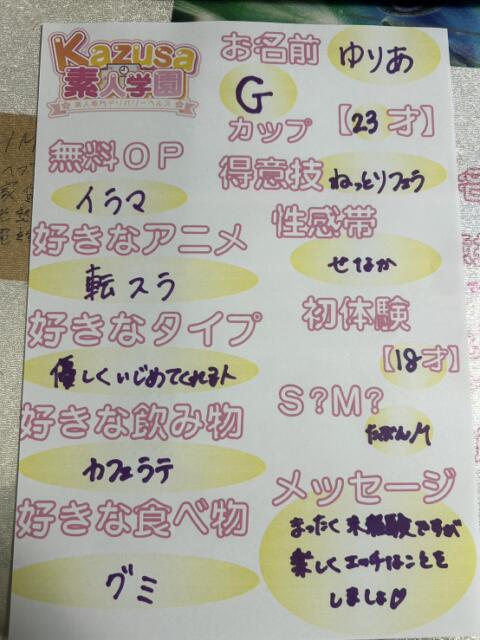 Kazusa
素人学園
☆素人専門デリバリーヘルス☆
お名前 ゆりあ
G
カップ 【23才】
無料OP
イラマ
得意技 ねっとりフェラ
好きなアニメ
転スラ
性感帯
せなか
好きなタイプ
優しくいじめてくれる人
初体験
【18才】
好きな飲み物
カフェラテ
S?M?
たぶんM
好きな食べ物
グミ
メッセージ
まったく未経験ですが
楽しくエッチなことを
しましょ♡